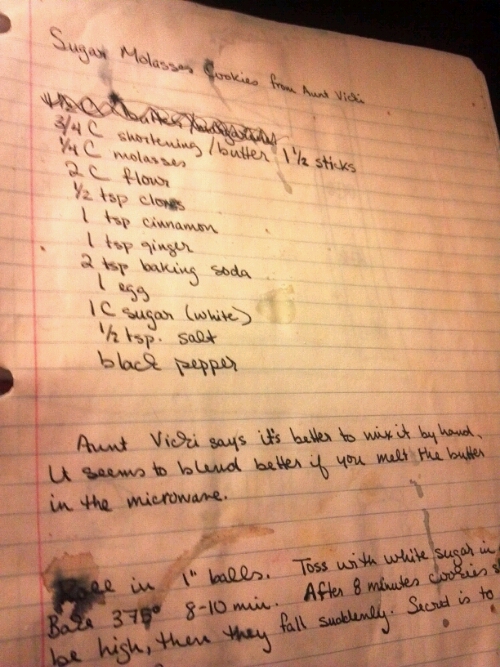 Sugar Molasses Cookies from Aunt Vicki
3/4 C shortening/butter 1 1/2 sticks
1/4 C molasses
2 C flour
1/2 tsp cloves
1 tsp cinnamon
1 tsp ginger
2 tsp baking soda
1 egg
1 C sugar (white)
1/2 tsp. salt
black pepper
Aunt Vicki says it's better to mix it by hand.
It seems to blend better if you melt the butter
in the microwave.
Roll in 1" balls. Toss with white sugar in
Bake 375° 8-10 min. After 8 minutes cookies
be high, then they fall suddenly. Secret is to